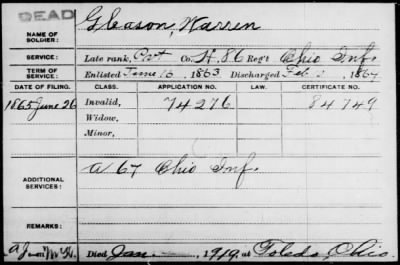 DEAD
NAME OF SOLDIER: Gleason, Warren
SERVICE: Late rank, Pvt Co. H, 86 Reg't Ohio Inf.
TERM OF SERVICE: Enlisted June 16, 1863 Discharged Feb , 1864
DATE OF FILING. CLASS. APPLICATION NO. LAW. CERTIFICATE NO.
1865 June 26 Invalid, 74276 84749
Widow,
Minor,
ADDITIONAL SERVICES: A 67 Ohio Inf.
REMARKS:
Died Jan , 1919, at Toledo, Ohio.